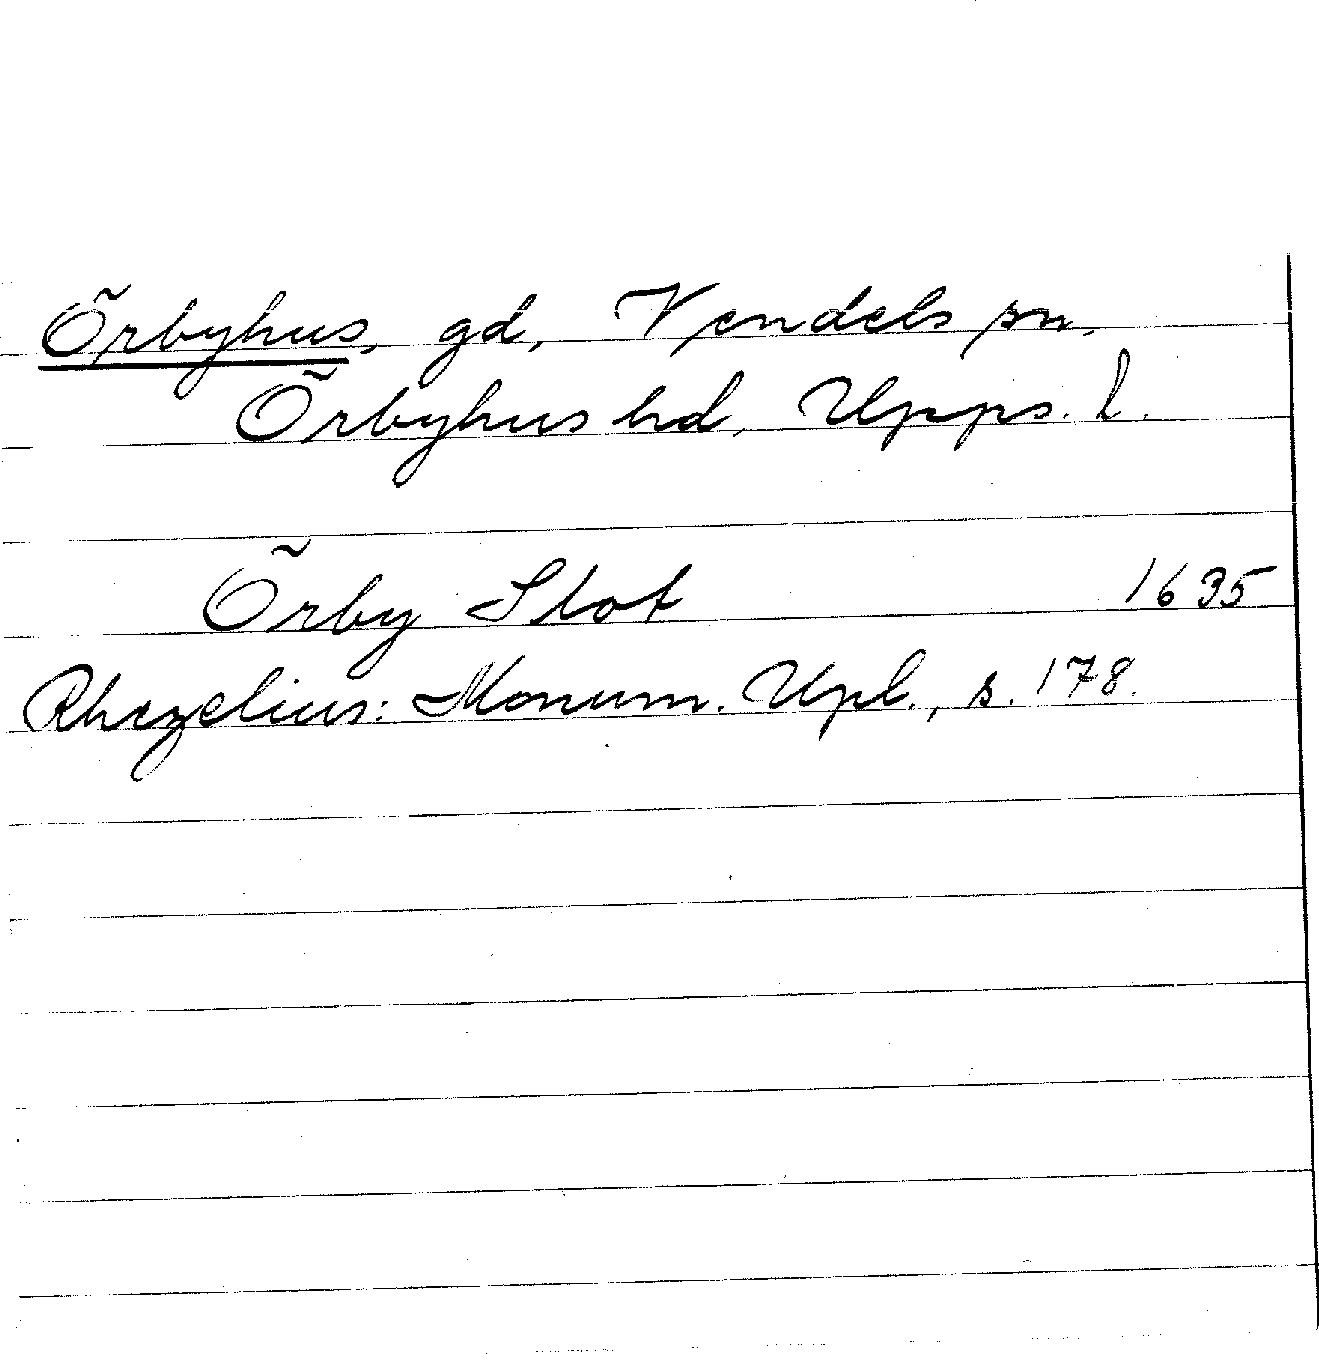 Örbyhus, gd, Vendels sn,
Örbyhus hd, Upps. l.
Örby Slot 1635
Rhezelius: Monum. Upl., s. 178.